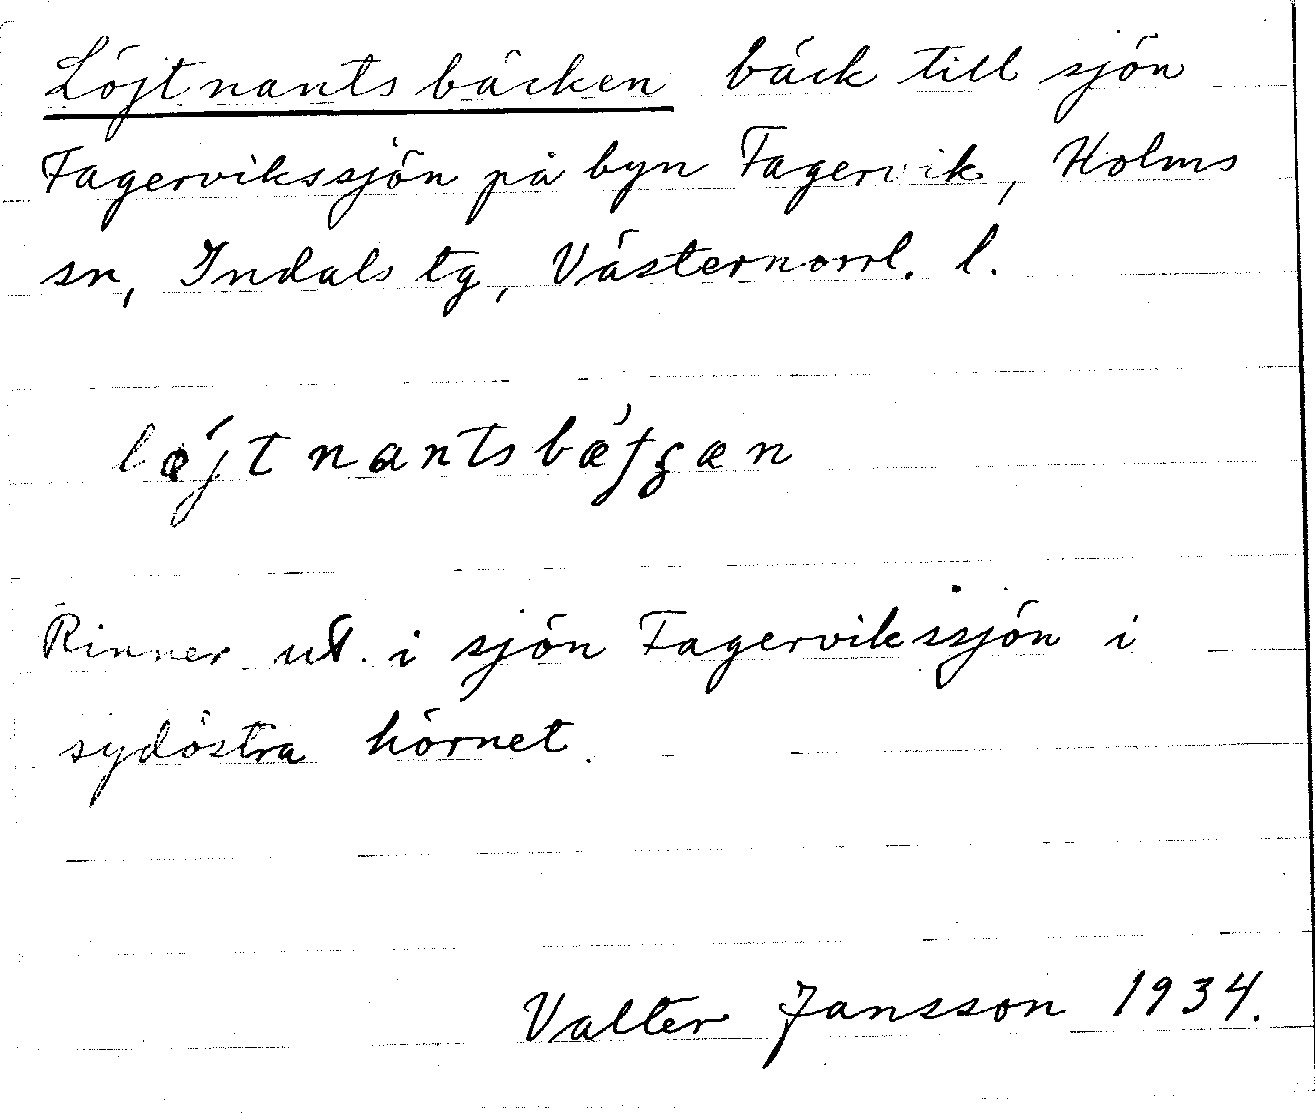 Löjtnantsbäcken bäck till sjön
Fagervikssjön på byn Fagervik, Holms
sn, Indals tg, Västernorrl. l.
Rinner ut i sjön Fagervikssjön i
sydöstra hörnet.
Valter Jansson 1934.